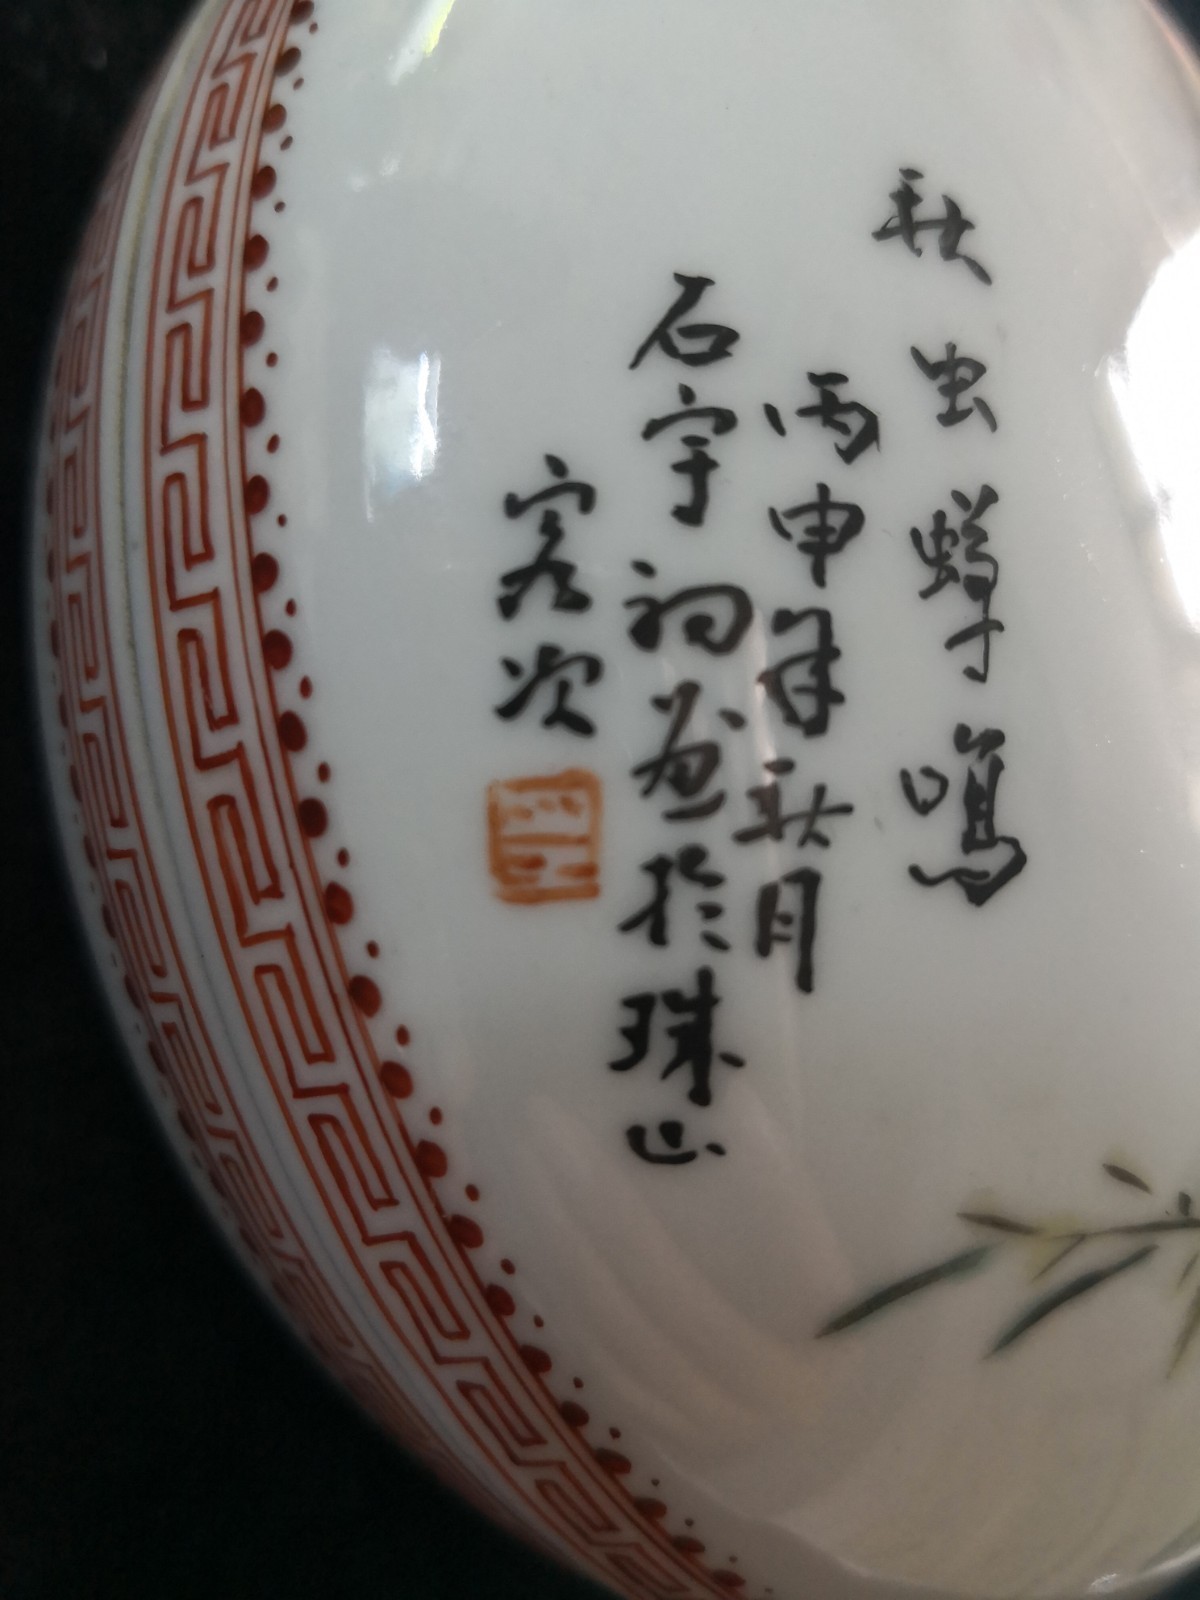 秋虫蟳鳴
丙申年秋月
石宇初画於珠山
客次